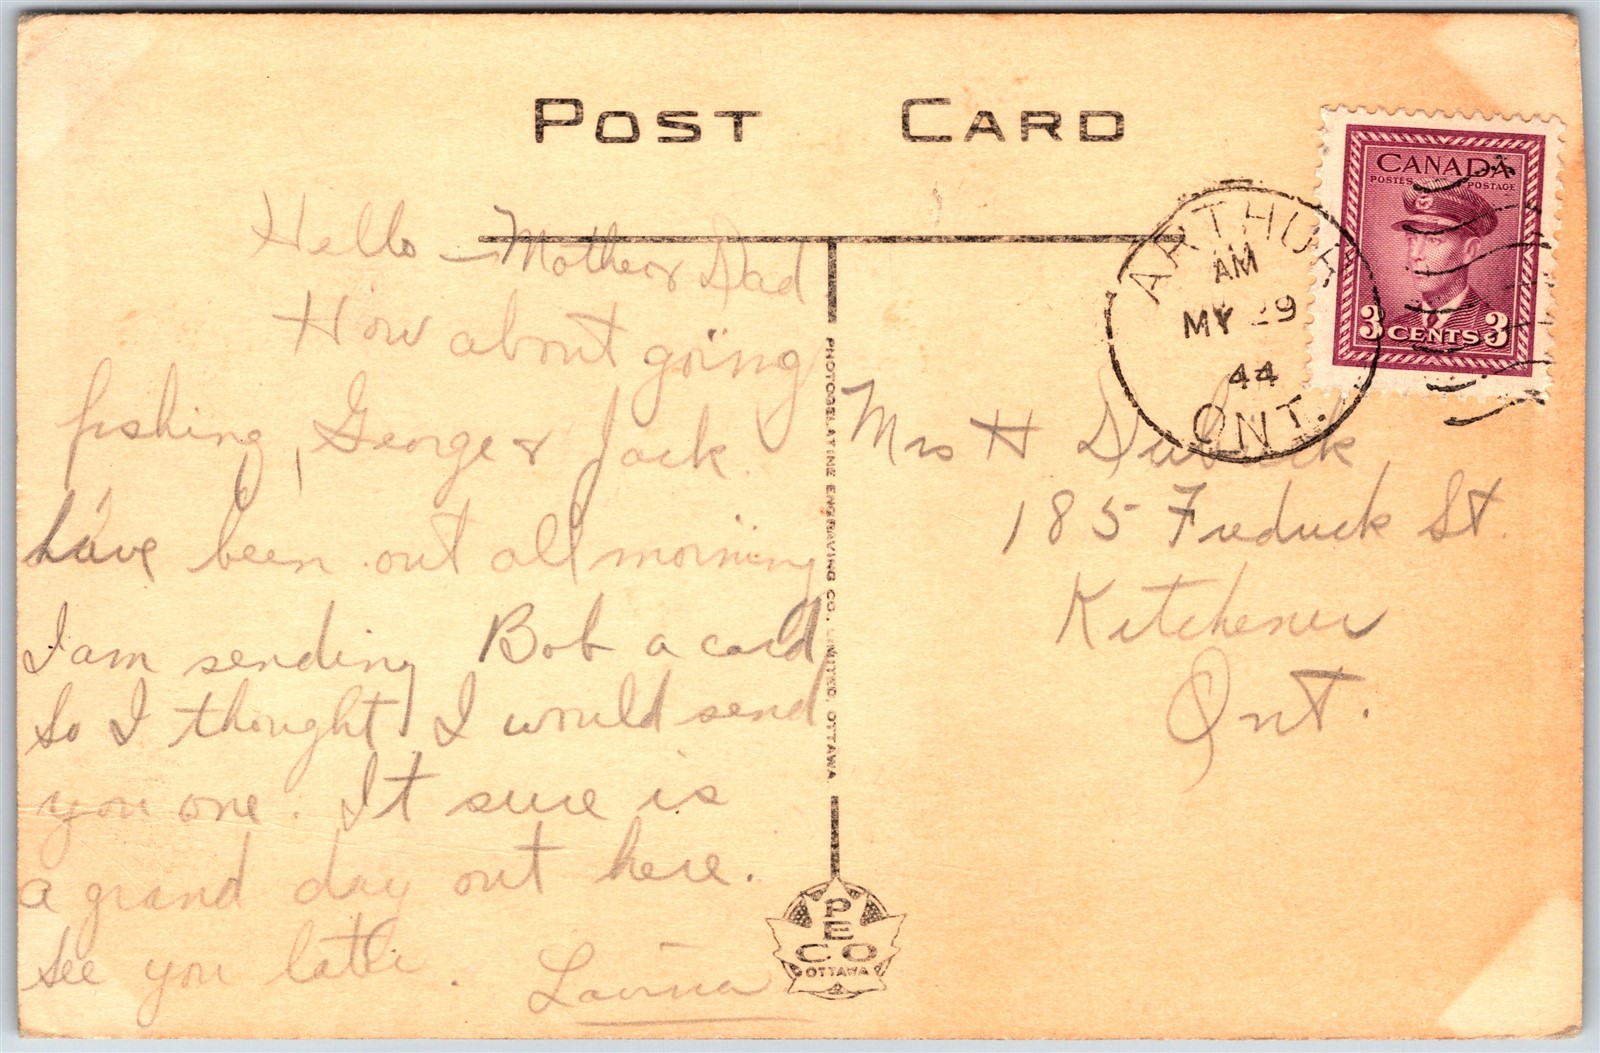 POST CARD
CANADA
POSTES POSTAGE
3 CENTS 3
ARTHUR
AM
MY 29
44
ONT.
Hello - Mother & Dad
How about going
fishing, George & Jack
have been out all morning
I am sending Bob a card
So I thought I would send
you one. It sure is
a grand day out here.
See you later.
Lavina
Mrs H
185 Frederick St.
Kitchener
Ont.
PHOTOGELATINE ENGRAVING CO. LIMITED. OTTAWA.
PECO
OTTAWA